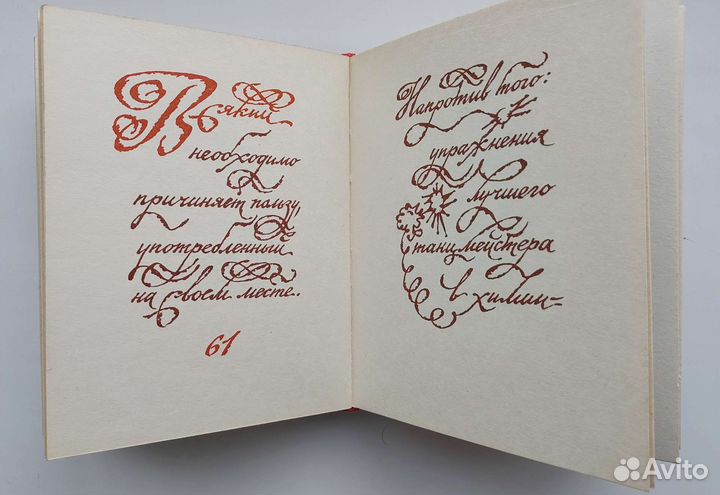 Всякий
необходимо
причиняет пользу,
употребленный
на своем месте.
61
Напротив того:
упражнения
лучшего
танцмейстера
в химии—
Avito